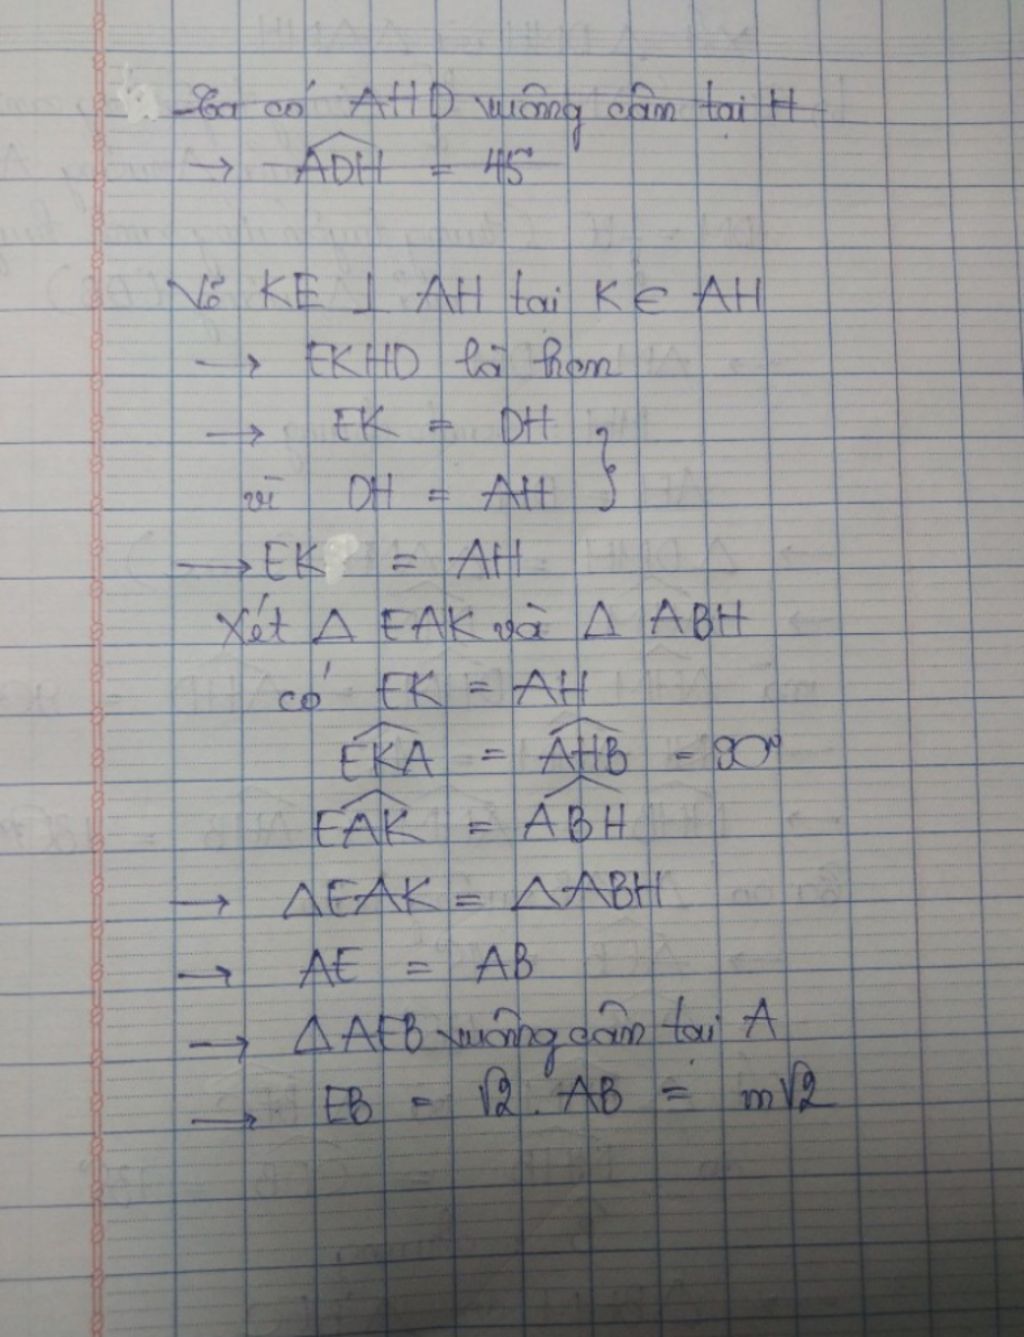 Ta có AHD vuông cân tại H
→ ADH = 45°
Vẽ KE ⊥ AH tại K ∈ AH
→ EKHD là hcn
→ EK = DH }
vì DH = AH
→ EK = AH
Xét Δ EAK và Δ ABH
có EK = AH
EKA = AHB = 90°
EAK = ABH
→ ΔEAK = ΔABH
→ AE = AB
→ ΔAEB vuông cân tại A
→ EB = √2 . AB = m√2